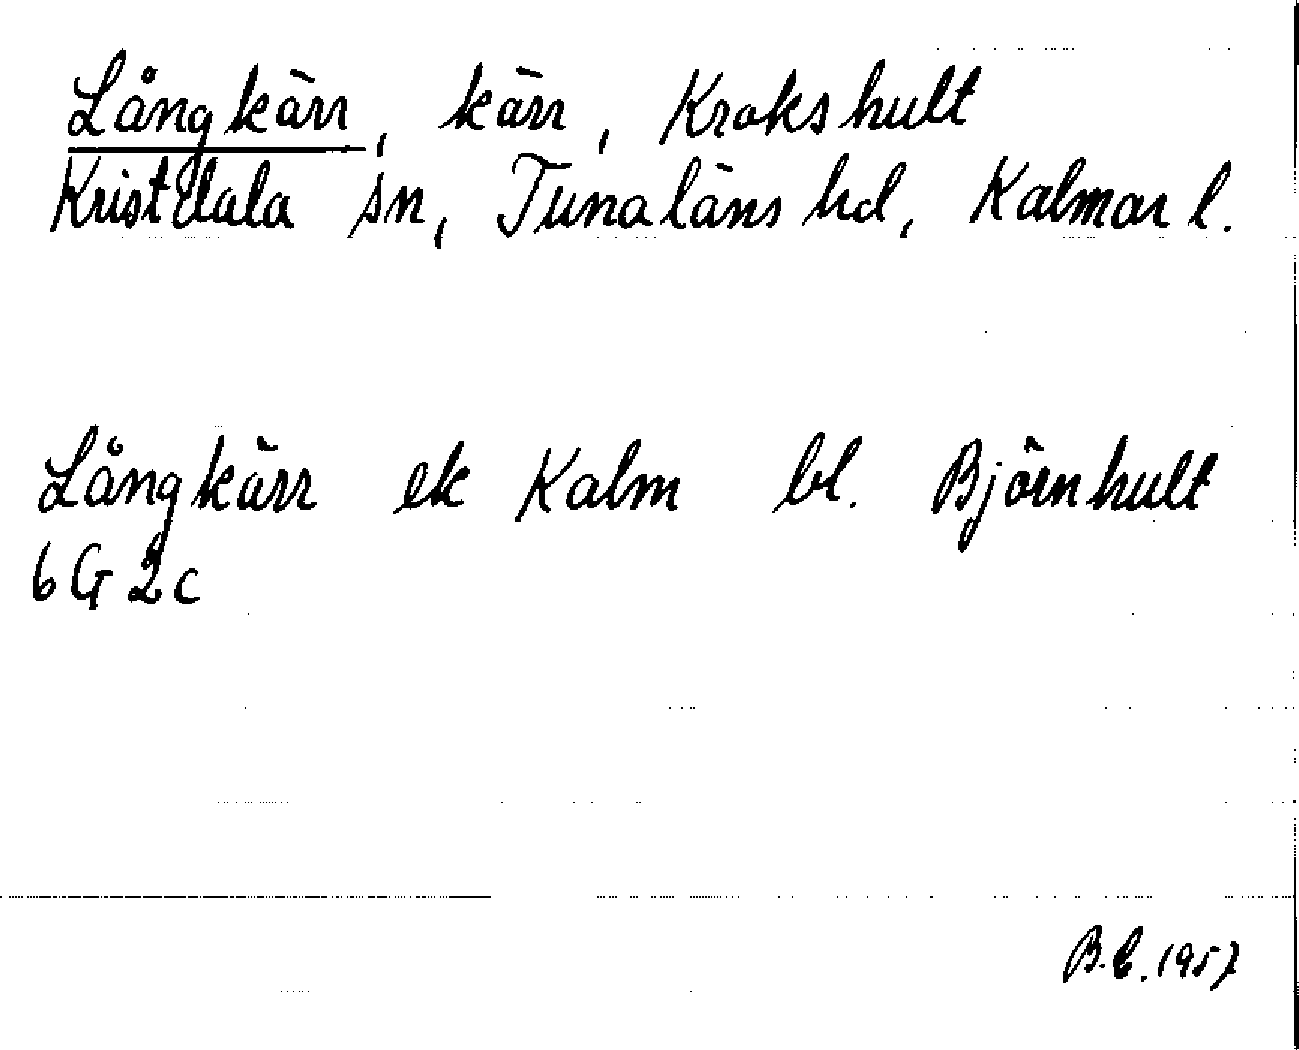 Långkärr, kärr, Krokshult
Kristdala sn, Tunaläns hd, Kalmar l.
Långkärr ek Kalm bl. Björnhult
6G2c
B.E. 1957